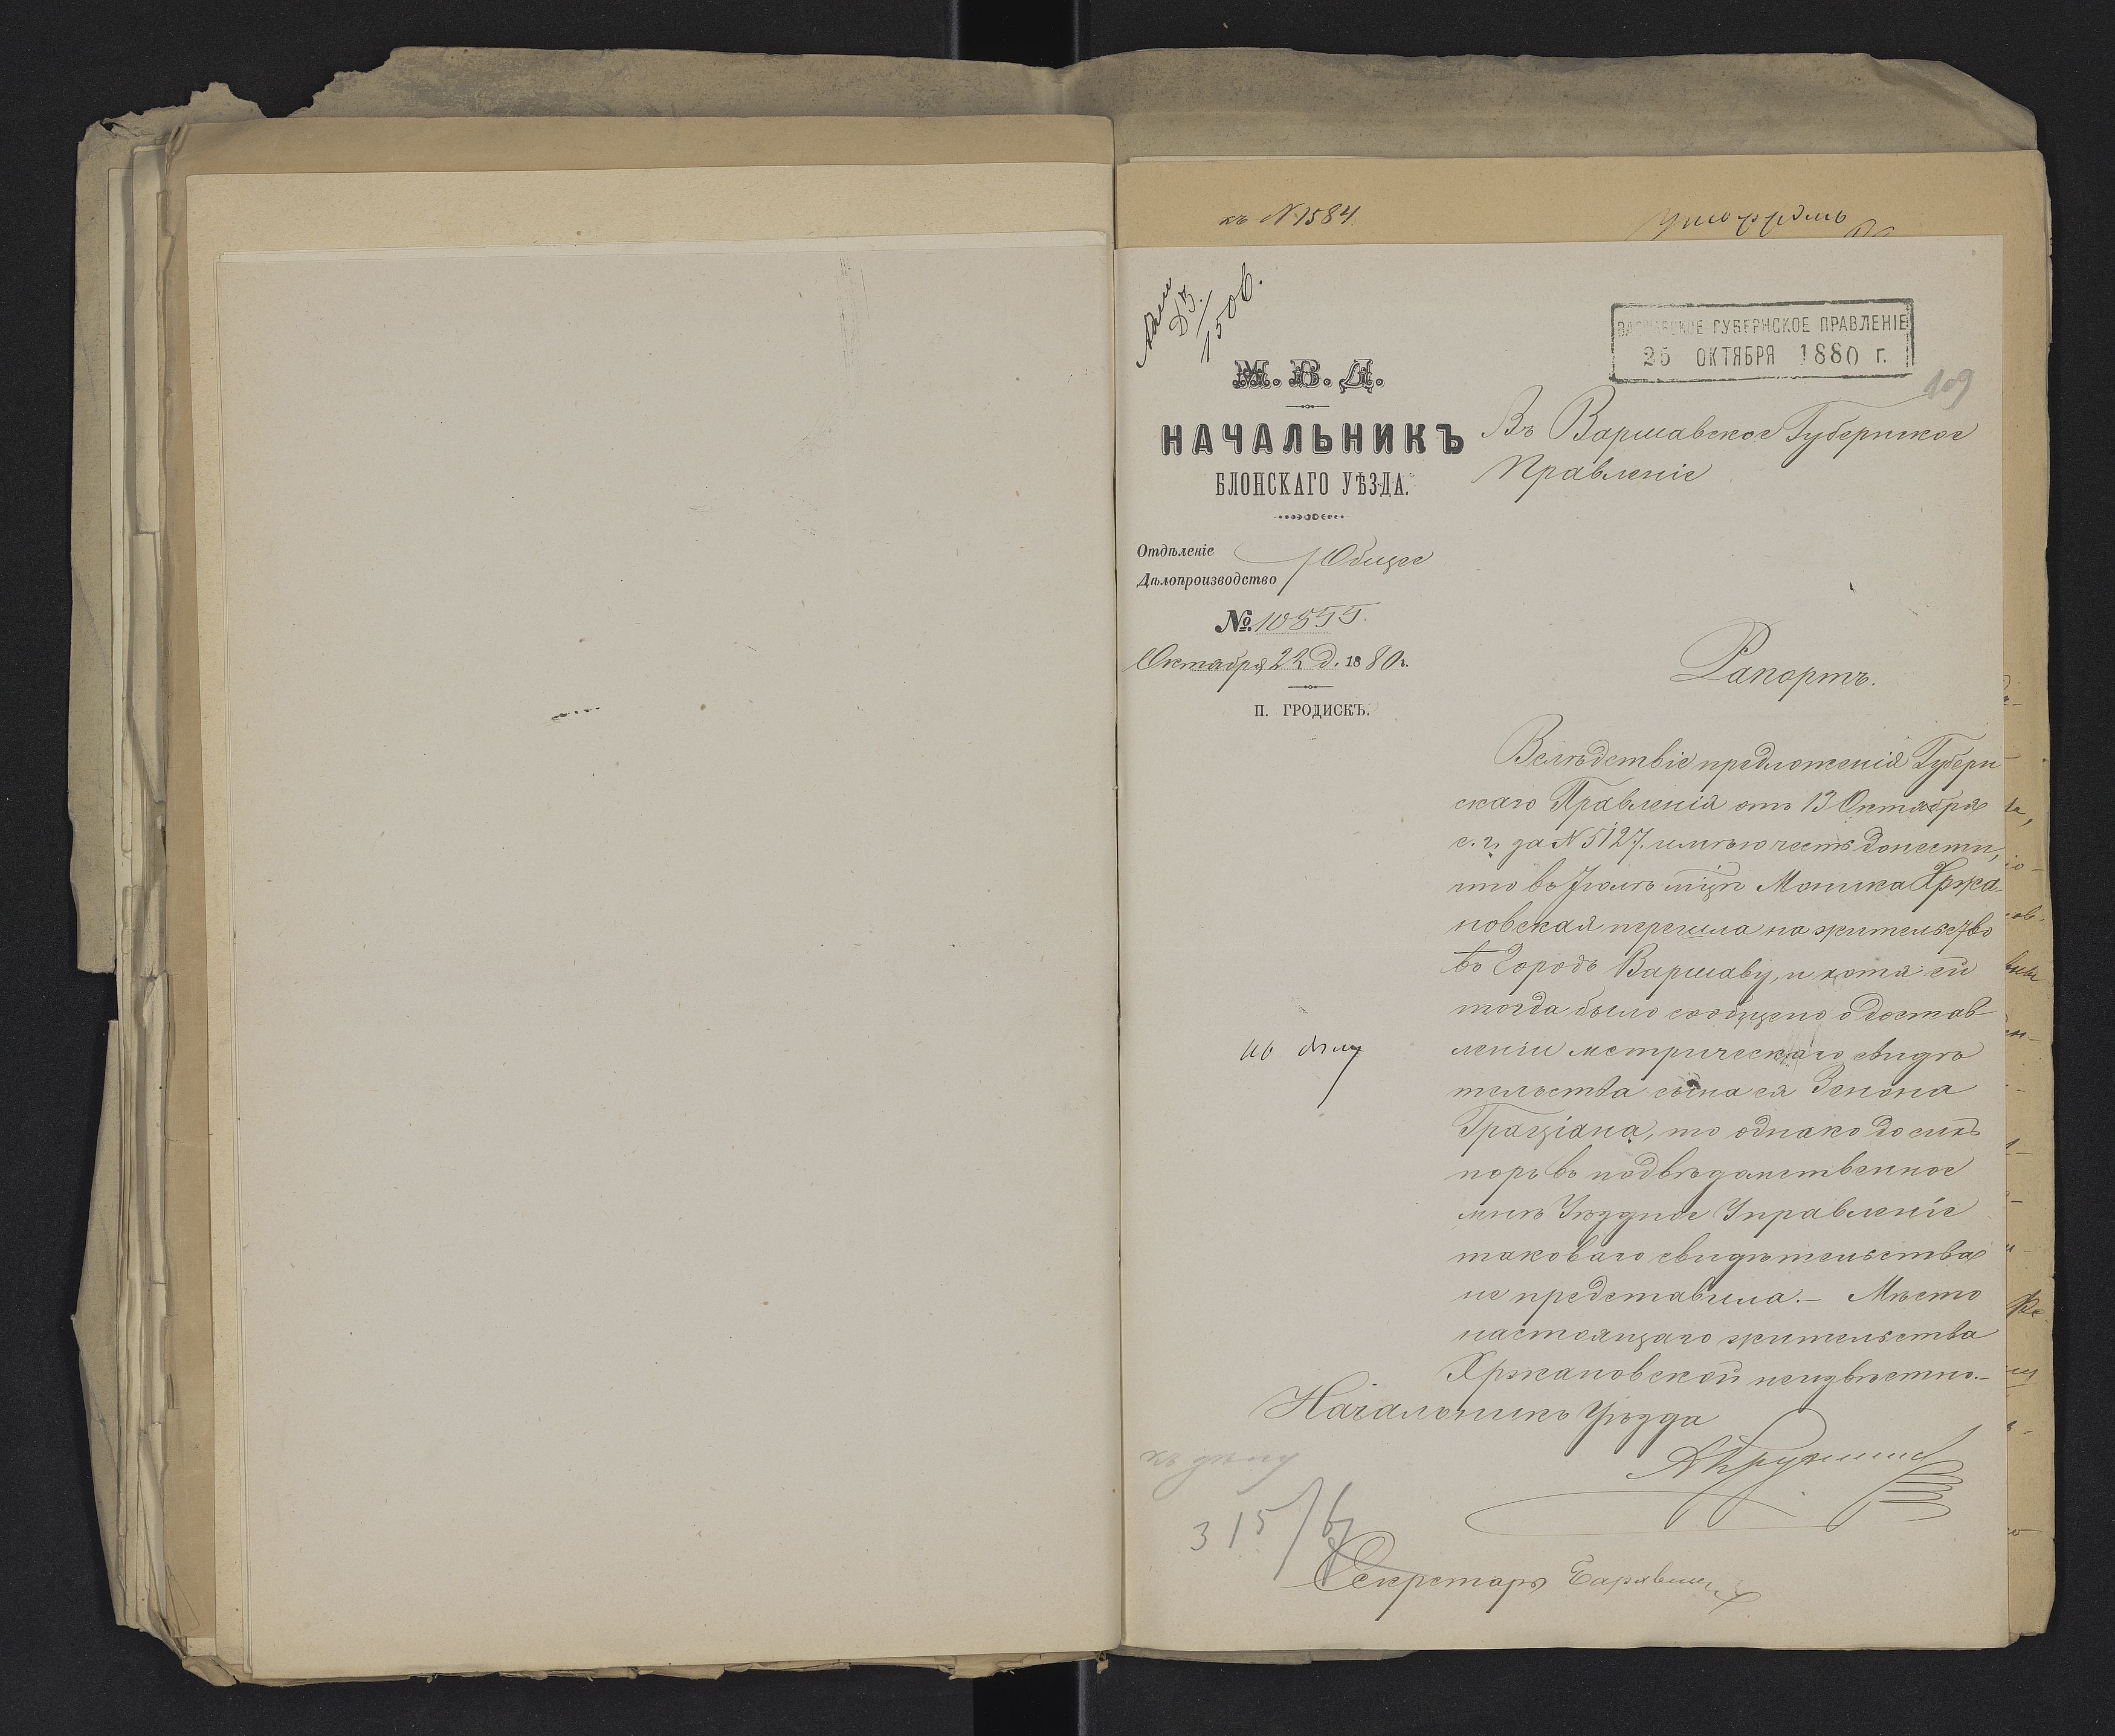 къ N 1584
ВАРШАВСКОЕ ГУБЕРНСКОЕ ПРАВЛЕНІЕ
25 ОКТЯБРЯ 1880 г.
109
М. В. Д.
НАЧАЛЬНИКЪ
БЛОНСКАГО УѢЗДА.
Отдѣленіе Общее
Дѣлопроизводство
№ 10855
Октября 22 д. 1880 г.
П. ГРОДИСКЪ.
Въ Варшавское Губернское
Правленіе
Рапортъ.
Вслѣдствіе предложенія Губерн
скаго Правленія отъ 13 Октября
с. г. за N 5127. имѣю честь донести,
что въ Іюлѣ мцѣ Моника Хржа-
новская перешла на жительство
въ Городъ Варшаву, и хотя ей
тогда было сообщено о достав
леніи метрическаго свидѣ
тельства сына ея Зенона
Граціана, то однако до сихъ
поръ въ подвѣдомственное
мнѣ Уѣздное Управленіе
таковаго свидѣтельства
не представила. – Мѣсто
настоящаго жительства
Хржановской неизвѣстно. –
Начальникъ Уѣзда
къ дѣлу
315/
Секретарь